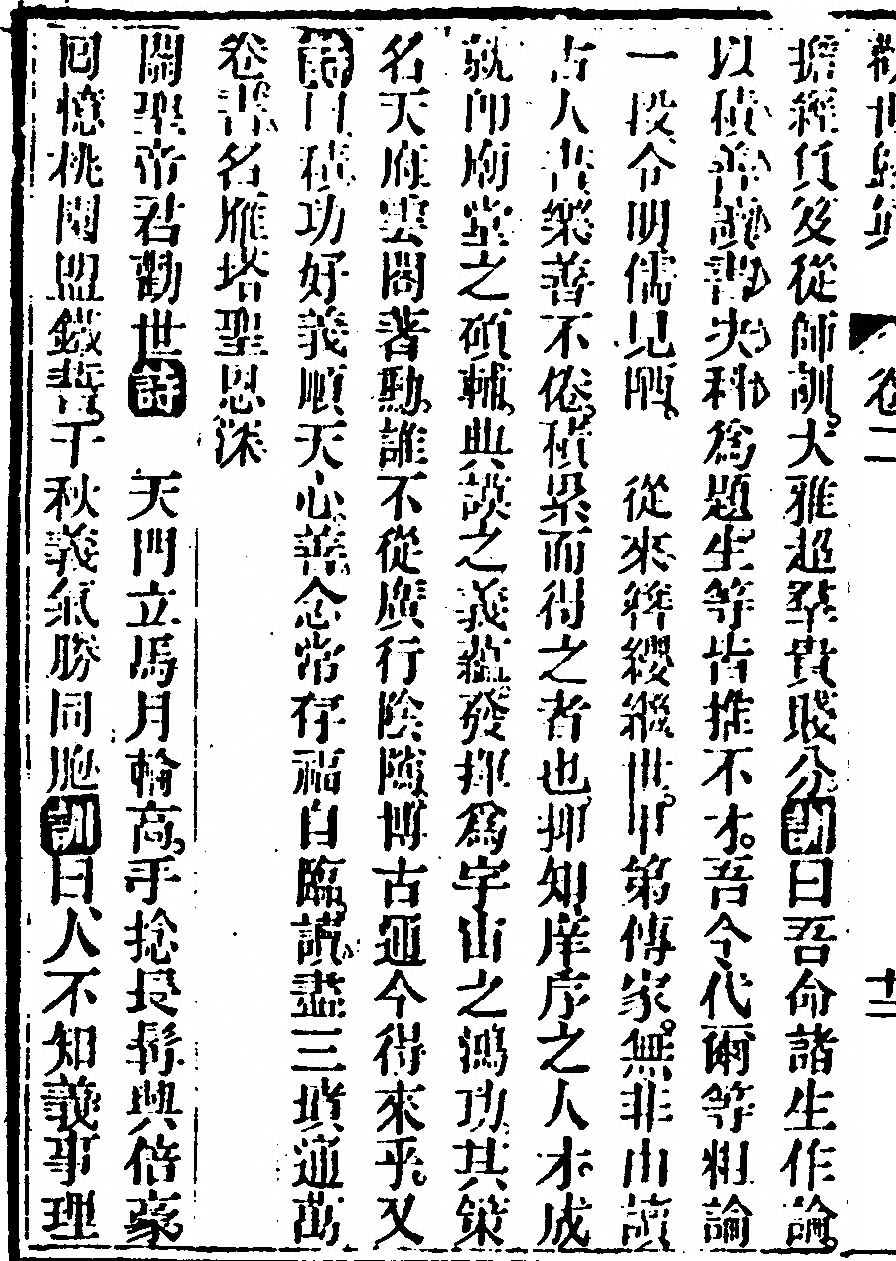 勸世歸真 卷二 十二
擔經負笈從師訓大雅超羣貴賤分訓曰吾命諸生作論
以積善讀書決科爲題生等皆推不才吾今代爾等粗論
一段令明儒見哂 從來簪纓繼世甲第傳家無非由讀
古人書樂善不倦積累而得之者也抑知庠序之人才成
就卽廟堂之碩輔典謨之義蘊發揮爲宇宙之鴻功其策
名天府雲閣著勳誰不從廣行陰隲博古通今得來乎又
詩曰積功好義順天心善念常存福自臨讀盡三墳通萬
卷書名雁塔聖恩深
關聖帝君勸世詩 天門立馬月輪高手捻長髯興倍豪
回憶桃園盟鐵誓千秋義氣勝同胞訓曰人不知義事理